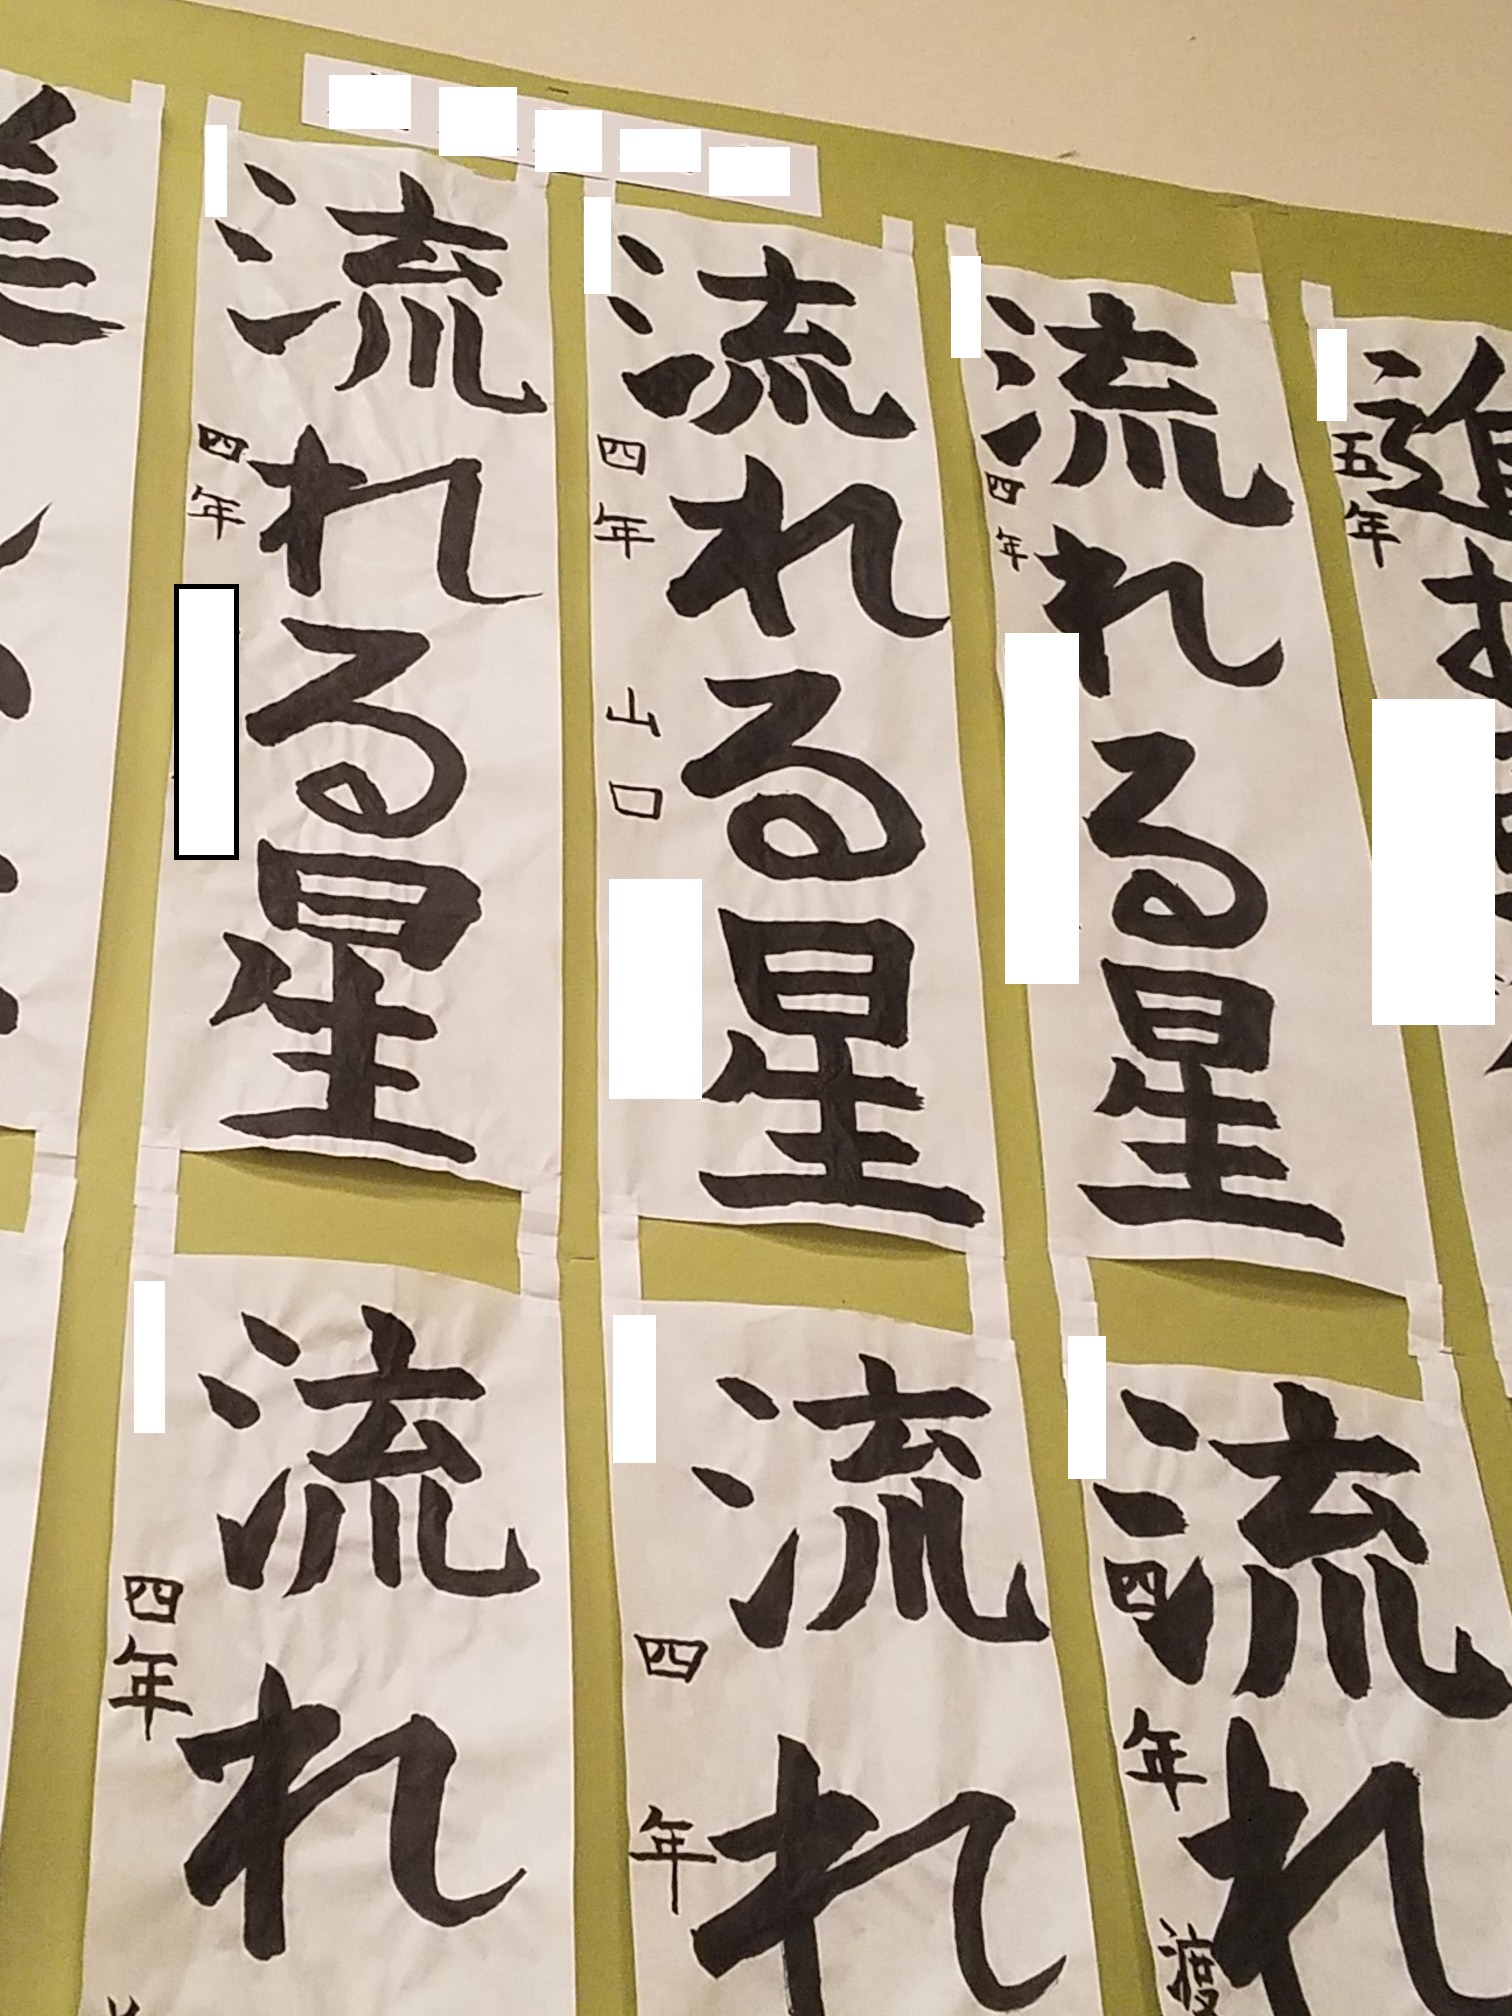 流れる星
四年
流れる星
四年
山口
流れる星
四年
進
五年
流れ
四年
流れ
四年
流れ
四年
渡